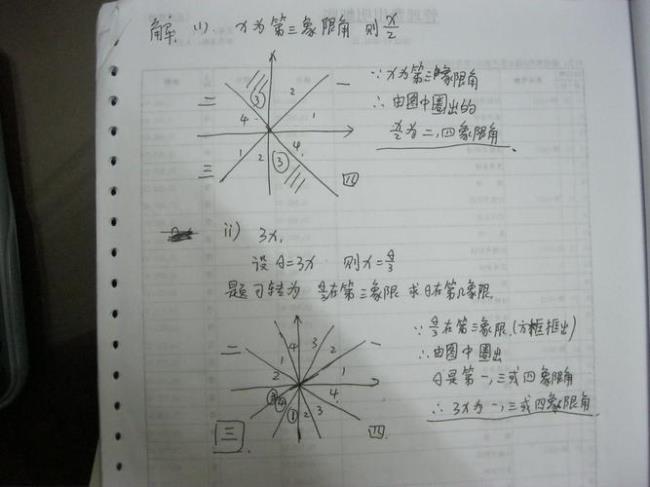 解. (i). x为第三象限角 则 x/2
二 一
③ 2
4 1
1 2 ③ 4
三 四
∵x为第三象限角
∴由图中圈出的
x/2为二,四象限角
ii) 3x.
设θ=3x 则x=θ/3
题可转为 θ/3在第三象限 求θ在第几象限
二 一
4 3
1 2
2 1
4
① 2 3
三 四
∵θ/3在第三象限.(方框框出)
∴由图中圈出
θ是第一,三或四象限角
∴3x为一,三或四象限角